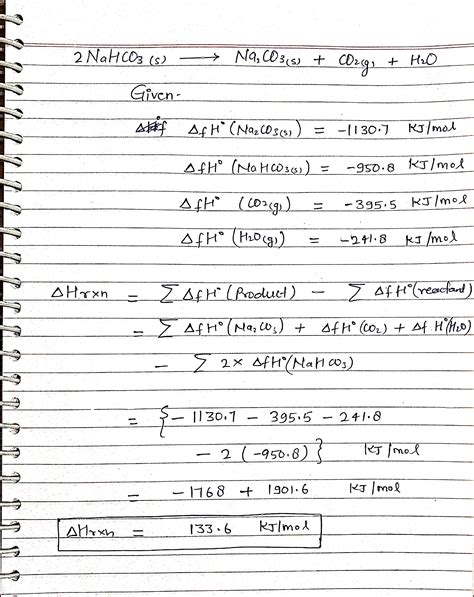 2NaHCO3 (s) ⟶ Na2CO3(s) + CO2(g) + H2O
Given-
ΔfH° (Na2CO3(s)) = -1130.7 KJ/mol
ΔfH° (NaHCO3(s)) = -950.8 KJ/mol
ΔfH° (CO2(g)) = -395.5 KJ/mol
ΔfH° (H2O(g)) = -241.8 KJ/mol
ΔHrxn = ∑ ΔfH° (Product) - ∑ ΔfH° (reactant)
= ∑ ΔfH° (Na2CO3) + ΔfH° (CO2) + Δf H°(H2O)
- ∑ 2× ΔfH°(NaHCO3)
= {- 1130.7 - 395.5 - 241.8
- 2 (-950.8)} KJ/mol
= -1768 + 1901.6 KJ/mol
ΔHrxn = 133.6 KJ/mol